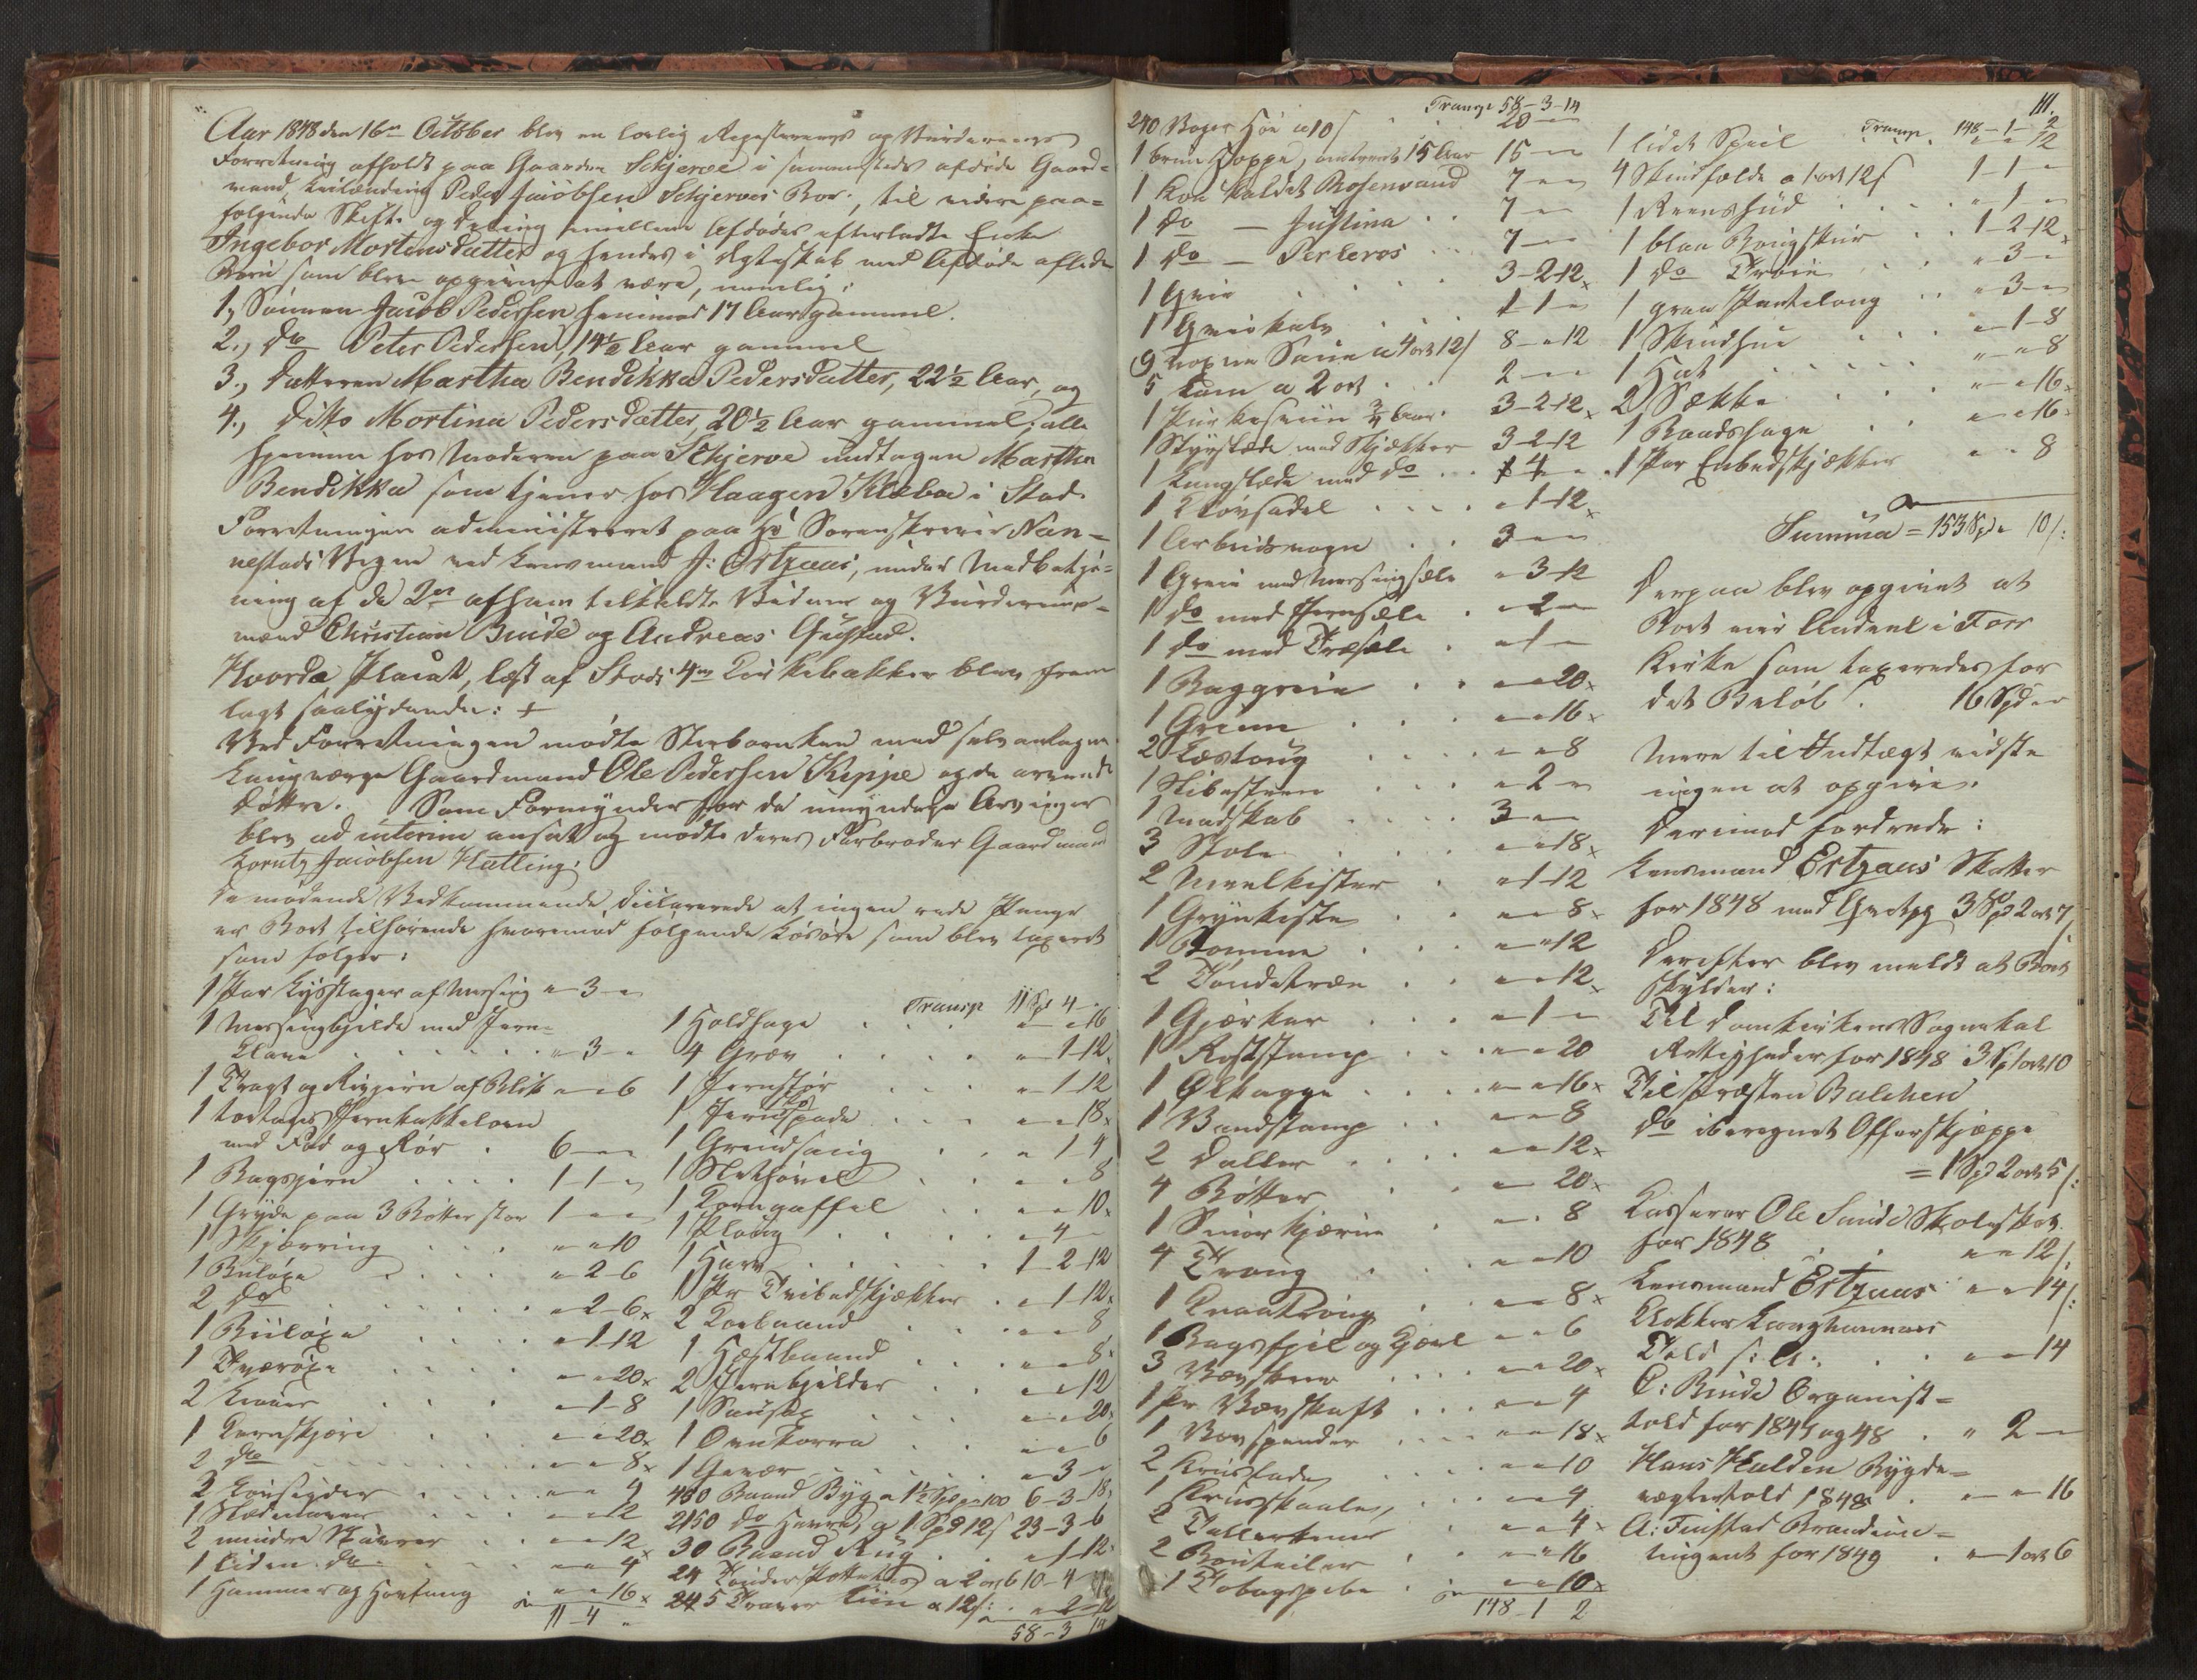 Aar 1848 den 16de October blev en lovlig Registrerings og Vurderings
Forretning afholdt paa Gaarden Schjerve i sammesteds afdøde Gaard=
mand, Peder Jacobsen Schjerves Boe, til videre paa=
følgende Skifte og Deling imellem Afdødes efterladte Enke
Ingebor Mortensdatter og hendes i Ægteskab med Afdøde aflede
Børn som blev opgivne at være, nemlig:
1, Sønnen Jacob Pedersen hjemme 17 Aar gammel.
2., do Peter Pedersen, 14½ Aar gammel
3., Datteren Martha Bendikka Pedersdatter, 22½ Aar, og
4., Ditto Mortina Pedersdatter, 20½ Aar gammel; alle
hjemme hos Moderen paa Schjerve undtagen Martha
Bendikka som tjener hos Haagen Klæboe i Stod.
Forretningen administreret paa Hr Sorenskriver Nan=
nestads Vegne ved Lensmand J: Ertzaas, under Medbetje=
ning af de 2de af ham tilkaldte Vidner og Vurderings=
mænd Christian Buide og Andreas Gustad.
Hvorda Placat, læst af Stods 4de Kirkebakker blev frem
lagt saalydende: +
Ved Forretningen mødte Sterboenken med selv antagne
Laugværge Gaardmand Ole Pedersen Kippe og de
Døttre. Som Formynder for de umyndige Arvinger
blev ad interim ansat og mødte deres Farbroder Gaardmand
Lorntz Jacobsen Hatling.
De mødende Vedkommende declarerede at ingen rede Penge
er Boet tilhørende hvorimod følgende Løsøre som blev taxeret
som følger:
1 Par Lysstager af Messing " - 3 - "
1 Messingkjelde med Jern=
Klave . . . " - 3 - "
1 Tragt og Rivjern af Blik " - " 6
1 toetages Jernkakkelovn
med Fod og Rør . 6 - " "
1 Bagsjern . . . 1 - 1 - "
1 Gryde paa 3 Bøtter stor 1 - " "
1 Skjørring . . . " - " 10
1 Buløxe . . . " - 2 - 6
2 do . . . " - 2 - 6 x
1 Biiløxe . . . " - 1 - 12
1 Tværøxe . . . " - " 20 x
2 Knive . . . " - 1 - 8
1 Kornskjøre . . . " - " 20 x
2 do . . . " - " 8 x
2 Lousigder . . . " - " 4
1 . . . " - " 12
2 mindre Skauver . . . " - " 12 x
1 liden do . . . " - " 4
1 Hammer og Hovtang . " - " 16 x
11 - 4 "
Transp 11 Spd 4 "
1 Holdsage . . . " - " 16
4 Græv . . . " - 1 - 12
1 Jernstør . . . " - 1 - 12
1 Jernspade . . . " - " 18 x
1 Greindsaug . . . " - 1 - 4
1 Slethøvel . . . " - " 8
1 Korngaffel . . . " - " 10 x
1 Ploug . . . " - 4 -
1 Harv . . . 1 - 2 - 12
1 Pr Tvibedskjækker . " - 1 - 12 x
2 Kobaand . . . " - " 8
1 Hestbaand . . . " - " 8 x
2 Jernkjelder . . . " - " 12
1 Sausax . . . " - " 20 x
1 Ovnkorra . . . " - " 6
1 Gevær . . . " - 3 - "
450 Baand Byg a 1½ Spd pr 100 6 - 3 - 18 x
2150 do Havre, a 1 Spd 12 s 23 - 3 - 6
30 Baand Rug . . . " - 1 - 12 x
24 Tønder Potatos a 2 ort 6 10 - 4 -
245 Traver Liin a 12 s: . " - 2 - 12
58 - 3 14
Transp 58 - 3 - 14
240 Voger Høi a 10 s 20 - "
1 brun Hoppe, omtrent 15 Aar 15 - "
1 Koe kaldet Rosenvand 7 - " "
1 do — Justina . . 7 - "
1 do — Perleros . . 7 - "
1 Qvie . . . 3 - 2 - 12 x
1 Qviekalv . . . 1 - 1 - "
9 voxne Sauer a 4 ort 12 s 8 - " 12
5 Lam a 2 ort . . 2 - " "
1 Purkesviin ¾ Aar. 3 - 2 - 12 x
1 Styrslæde med Skjækker 3 - 2 - 12
1 Langslæde med do . . 4 - "
1 Kløvsadel . . . " - 1 - 12 x
1 Arbeidsvogn . . 3 - "
1 Greie med Messingsæle " - 3 - 12
1 do med Jernsæle . " - 2 - "
1 do med Træsæle . " - 1 -
1 Baggreie . . . " - " 20 x
1 Grime . . . " - " 16 x
2 Læstoug . . . " - " 8
1 Slibesteen . . . " - 2 - "
1 Madskab . . . 3 - "
3 Stole . . . " - " 18 x
2 Meelkister . . " - 1 - 12
1 Grynkiste . . . " - " 8 x
1 Komme . . . " - " 12
2 Tøndetræe . . . " - " 12 x
1 Gjærkar . . . " - 1 - "
1 Roststamp . . . " - " 20
1 Ølkagge . . . " - " 16 x
1 Vandstamp . . . " - " 8
2 Daller . . . " - " 12 x
4 Bøtter . . " - 20 x
1 Smørkjærne . . " - " 8
4 Traug . . . " - " 10
1 Knaatroug . . . " - " 8 x
1 Bagsfjel og Kjævl " - " 6
3 Vævskeer . . . " - " 20 x
1 Pr Vævskaft . . . " - " 4
1 Vævspender . . . " - " 18 x
2 Kruusfade . . . " - " 10
1 Kruusskaale, . . . " - " 4
2 Tallerkener . . . " - " 4 x
2 Bouteiler . . . " - " 16
1 Tobagspibe . . " - " 10 x
148 - 1 2
111.
Transp 148 - 1 - 2
1 lidet Speil . . . " - " 12
4 Skindfælde a 1 ort 12 s 1 - 1 - "
1 Reenshud . . . " - 1 - "
1 blaa . . 1 - 2 - 12 x
1 do Trøie . . . " - 3 - "
1 graa Pantelong . . " - 3 - "
1 Skindhue . . . " - 1 - 8
1 Hat . . . " - " 8
2 Sække . . . " - " 16 x
1 Baadshage . . . " - " 16
1 Par Enbedskjækker " - " 8
Summa = 153 Spd " 10 s:
Derpaa blev opgivet at
Boet eier Andeel i For
Kirke som taxeredes for
det Beløb . 16 Spd " "
Mere til Indtægt vidste
ingen at opgive.
Derimod fordrede:
Lensmand Ertzaas Skatter
for 1848 med 3 Spd 2 ort 7 s
Derefter blev meldt at Boet
skylder:
Til Domkirkens Sognekal
Rettigheder for 1848 3 Sp 1 ort 10
Til Præsten Balchen
do iberegnet Offerskjæppe
= 1 Spd 2 ort 5 s:
Casserer Ole Sunde Skoleskat
for 1848 . . " - " 12 s.
Lensmand Ertzaas " - " 14 s:
Klokker Langhammers
Told s: A: . . . " - " 14
C: Buide Organist=
told for 1847 og 48 . " 2 -
Hans Halden Bygde=
vægtertold 1848 . " - " 16
A: Tuistad Brandcon=
tingent for 1849 . " - 1 ort 6